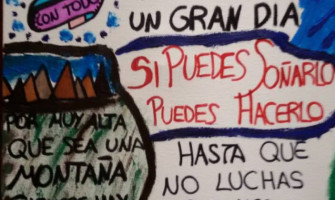 CON TODO
UN GRAN DIA
SI PUEDES SOÑARLO
PUEDES HACERLO
POR MUY ALTA
QUE SEA UNA
MONTAÑA
HAY
HASTA QUE
NO LUCHAS